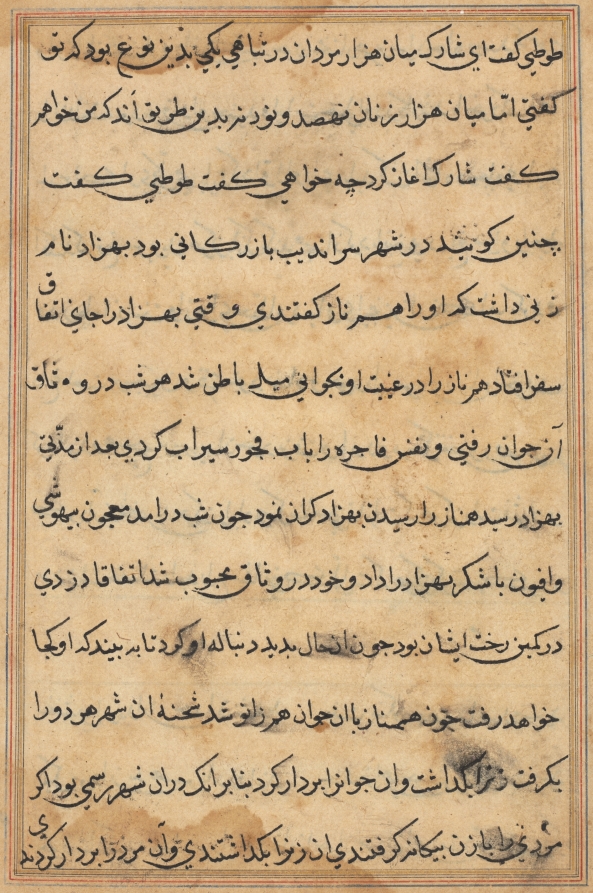 طوطی کفت ای شارک میان هزار مردان در تباهی یکی بدین نوع بود که تو
کفتی امّا میان هزار زنان نهصد و نود نه بدین طریق اند که من خواهم
کفت شارک اغاز کرد چه خواهی کفت طوطی کفت
چنین کویند در شهر سراندیب بازرکانی بود بهزاد نام
زنی داشت که او را همناز کفتندی وقتی بهزاد را جای اتفاق
سفر افتاد همناز را در غیبت او بجوانی میل باطن شد هر شب در وثاق
آن جوان رفتی و نفس فاجره را باب فجور سیراب کردی بعد از مدّتی
بهزاد رسید همناز را رسیدن بهزاد کران نمود جون شب درامد معجون بیهوشی
و افیون با شکر بهزاد را داد و خود در وثاق محبوب شد اتفاقا دزدی
در کمین رخت ایشان بود جون ان حال بدید دنباله او کرد تا به بیند که او کجا
خواهد رفت جون همناز با ان جوان هم زانو شد شحنهٔ ان شهر هر دو را
بکرفت زنرا بکداشت وان جوانرا بردار کرد بنابر انک دران شهر رسمی بود اکر
مردی را با زن بیکانه کرفتندی ان زنرا بکداشتندی وآن مرد را بردار کردندی